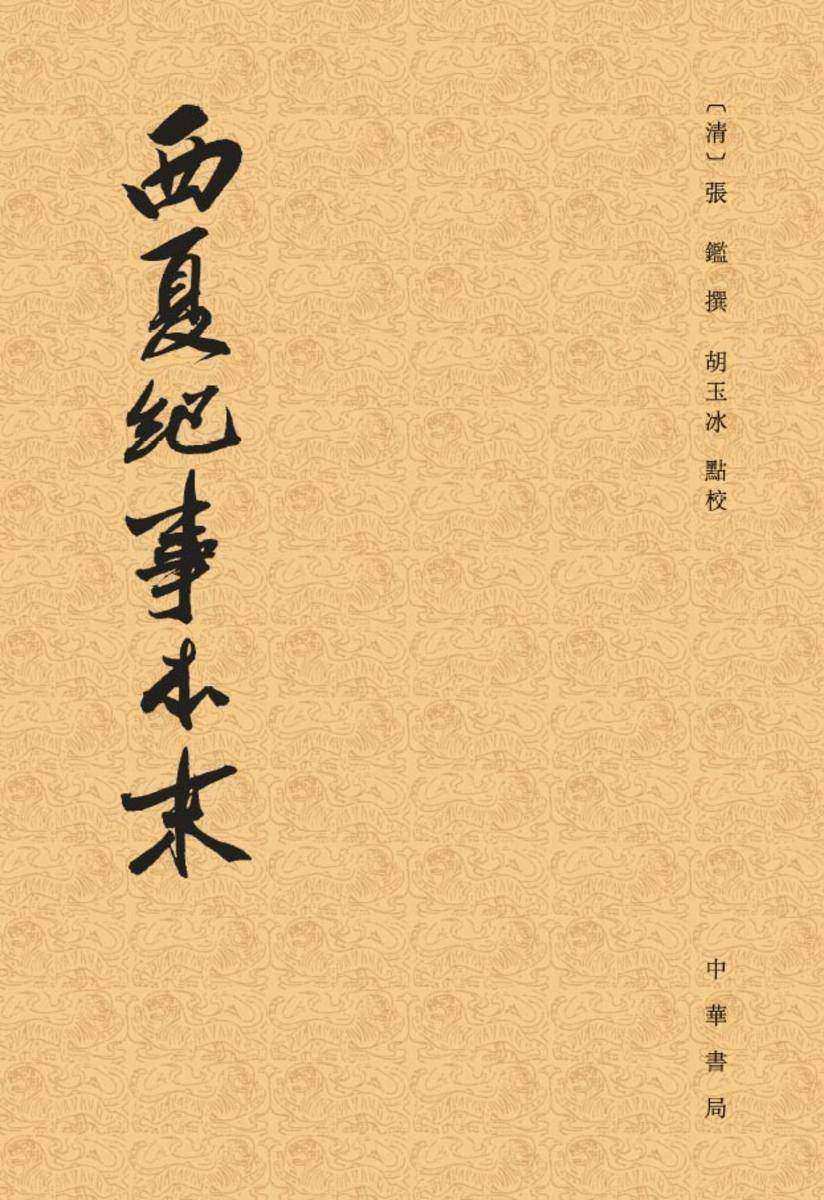 〔清〕張鑑撰 胡玉冰 點校
中華書局
西夏紀事本末